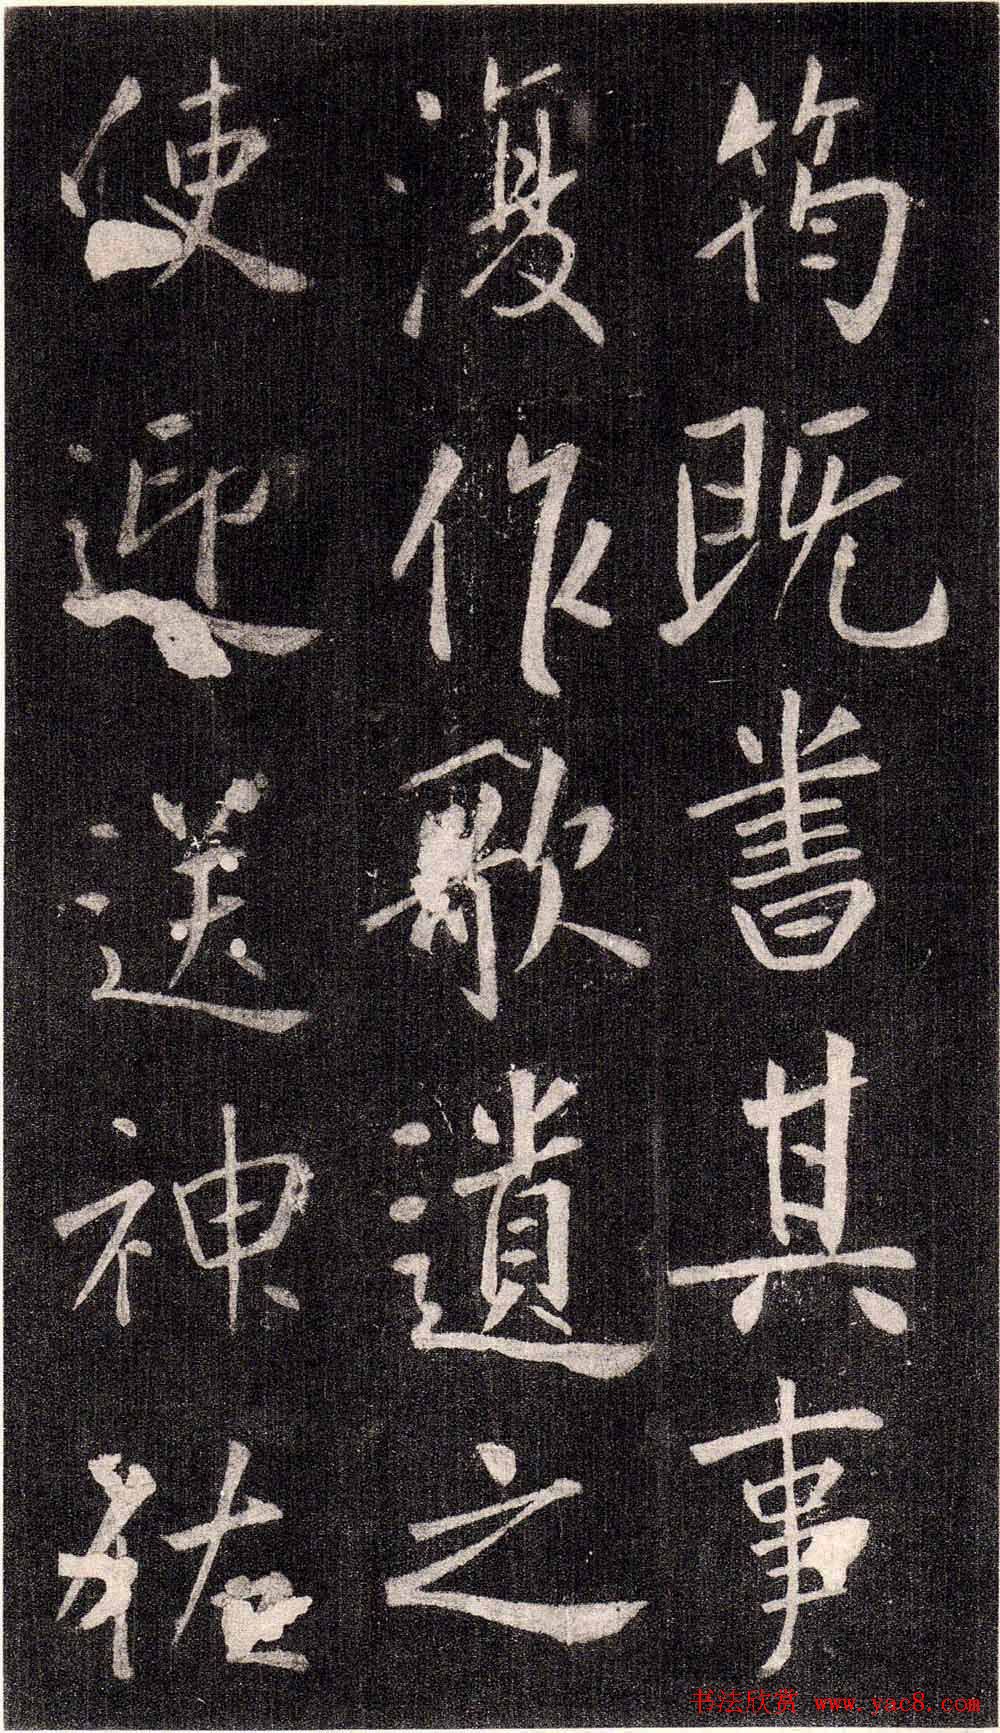 筠既書其事
復作歌遺之
使迎送神祐
书法欣赏 www.yac8.com